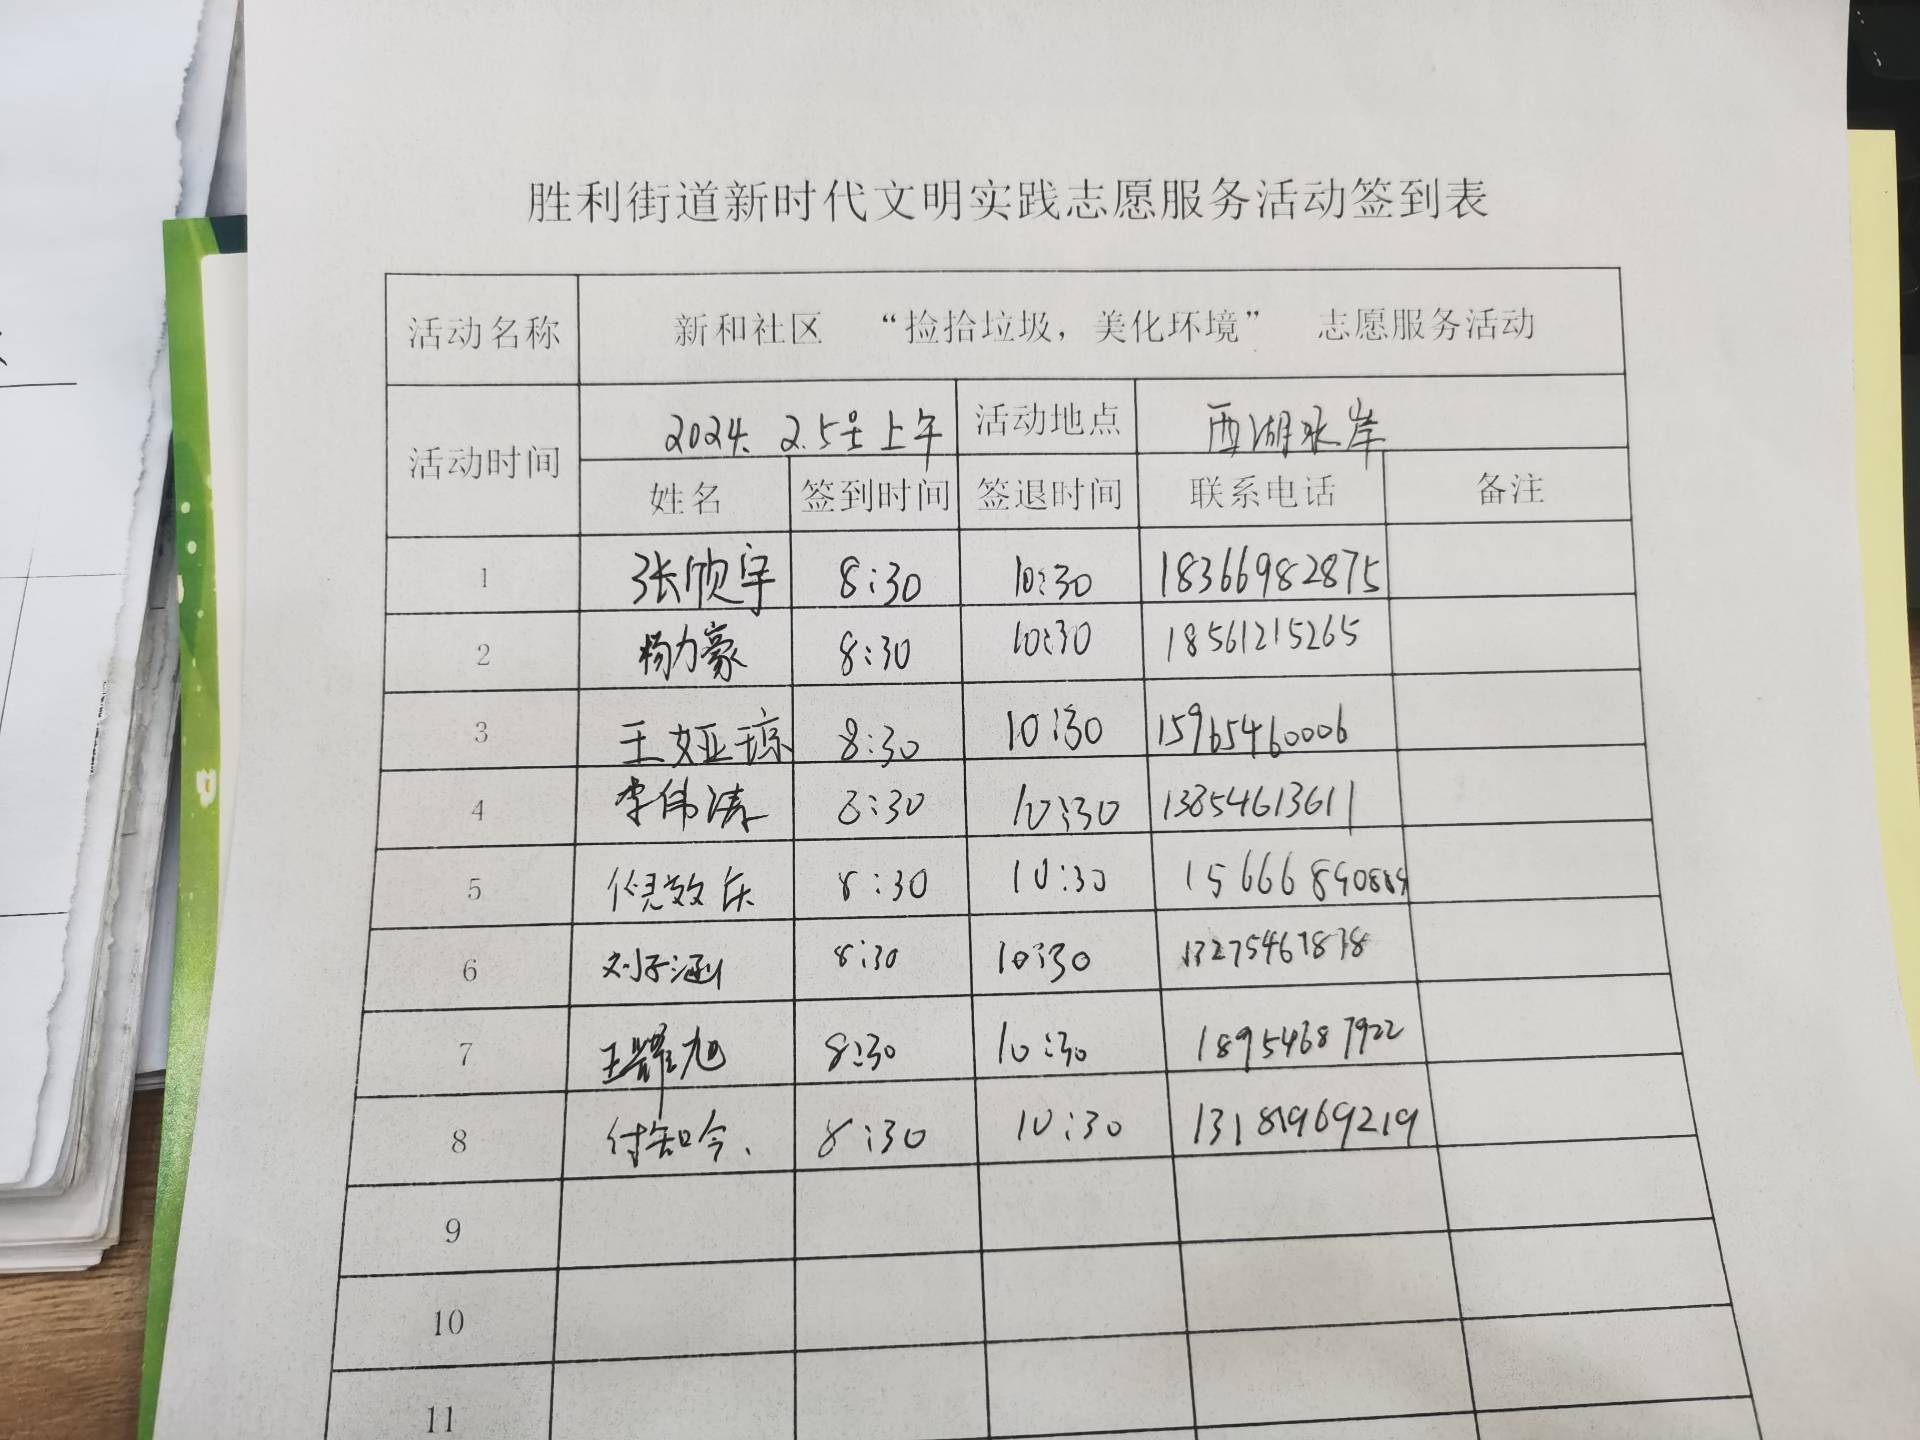 胜利街道新时代文明实践志愿服务活动签到表
活动名称 新和社区 “捡拾垃圾，美化环境” 志愿服务活动
活动时间 2024. 2.5号上午 活动地点 西湖水岸
姓名 签到时间 签退时间 联系电话 备注
1 张欣宇 8:30 10:30 18366982875
2 杨力豪 8:30 10:30 18561215265
3 王娅琼 8:30 10:30 15965460006
4 李伟涛 8:30 10:30 13854613611
5 倪效乐 8:30 10:30
6 刘子涵 8:30 10:30
7 王耀旭 8:30 10:30 18954687922
8 付知今、 8:30 10:30 13181969219
9
10
11